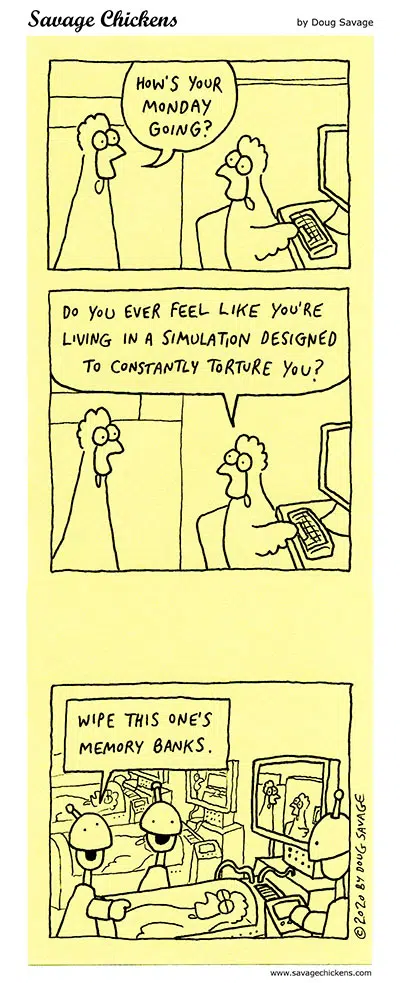 Savage Chickens
by Doug Savage
HOW'S YOUR
MONDAY
GOING?
DO YOU EVER FEEL LIKE YOU'RE
LIVING IN A SIMULATION DESIGNED
TO CONSTANTLY TORTURE YOU?
WIPE THIS ONE'S
MEMORY BANKS.
© 2020 BY DOUG SAVAGE
www.savagechickens.com